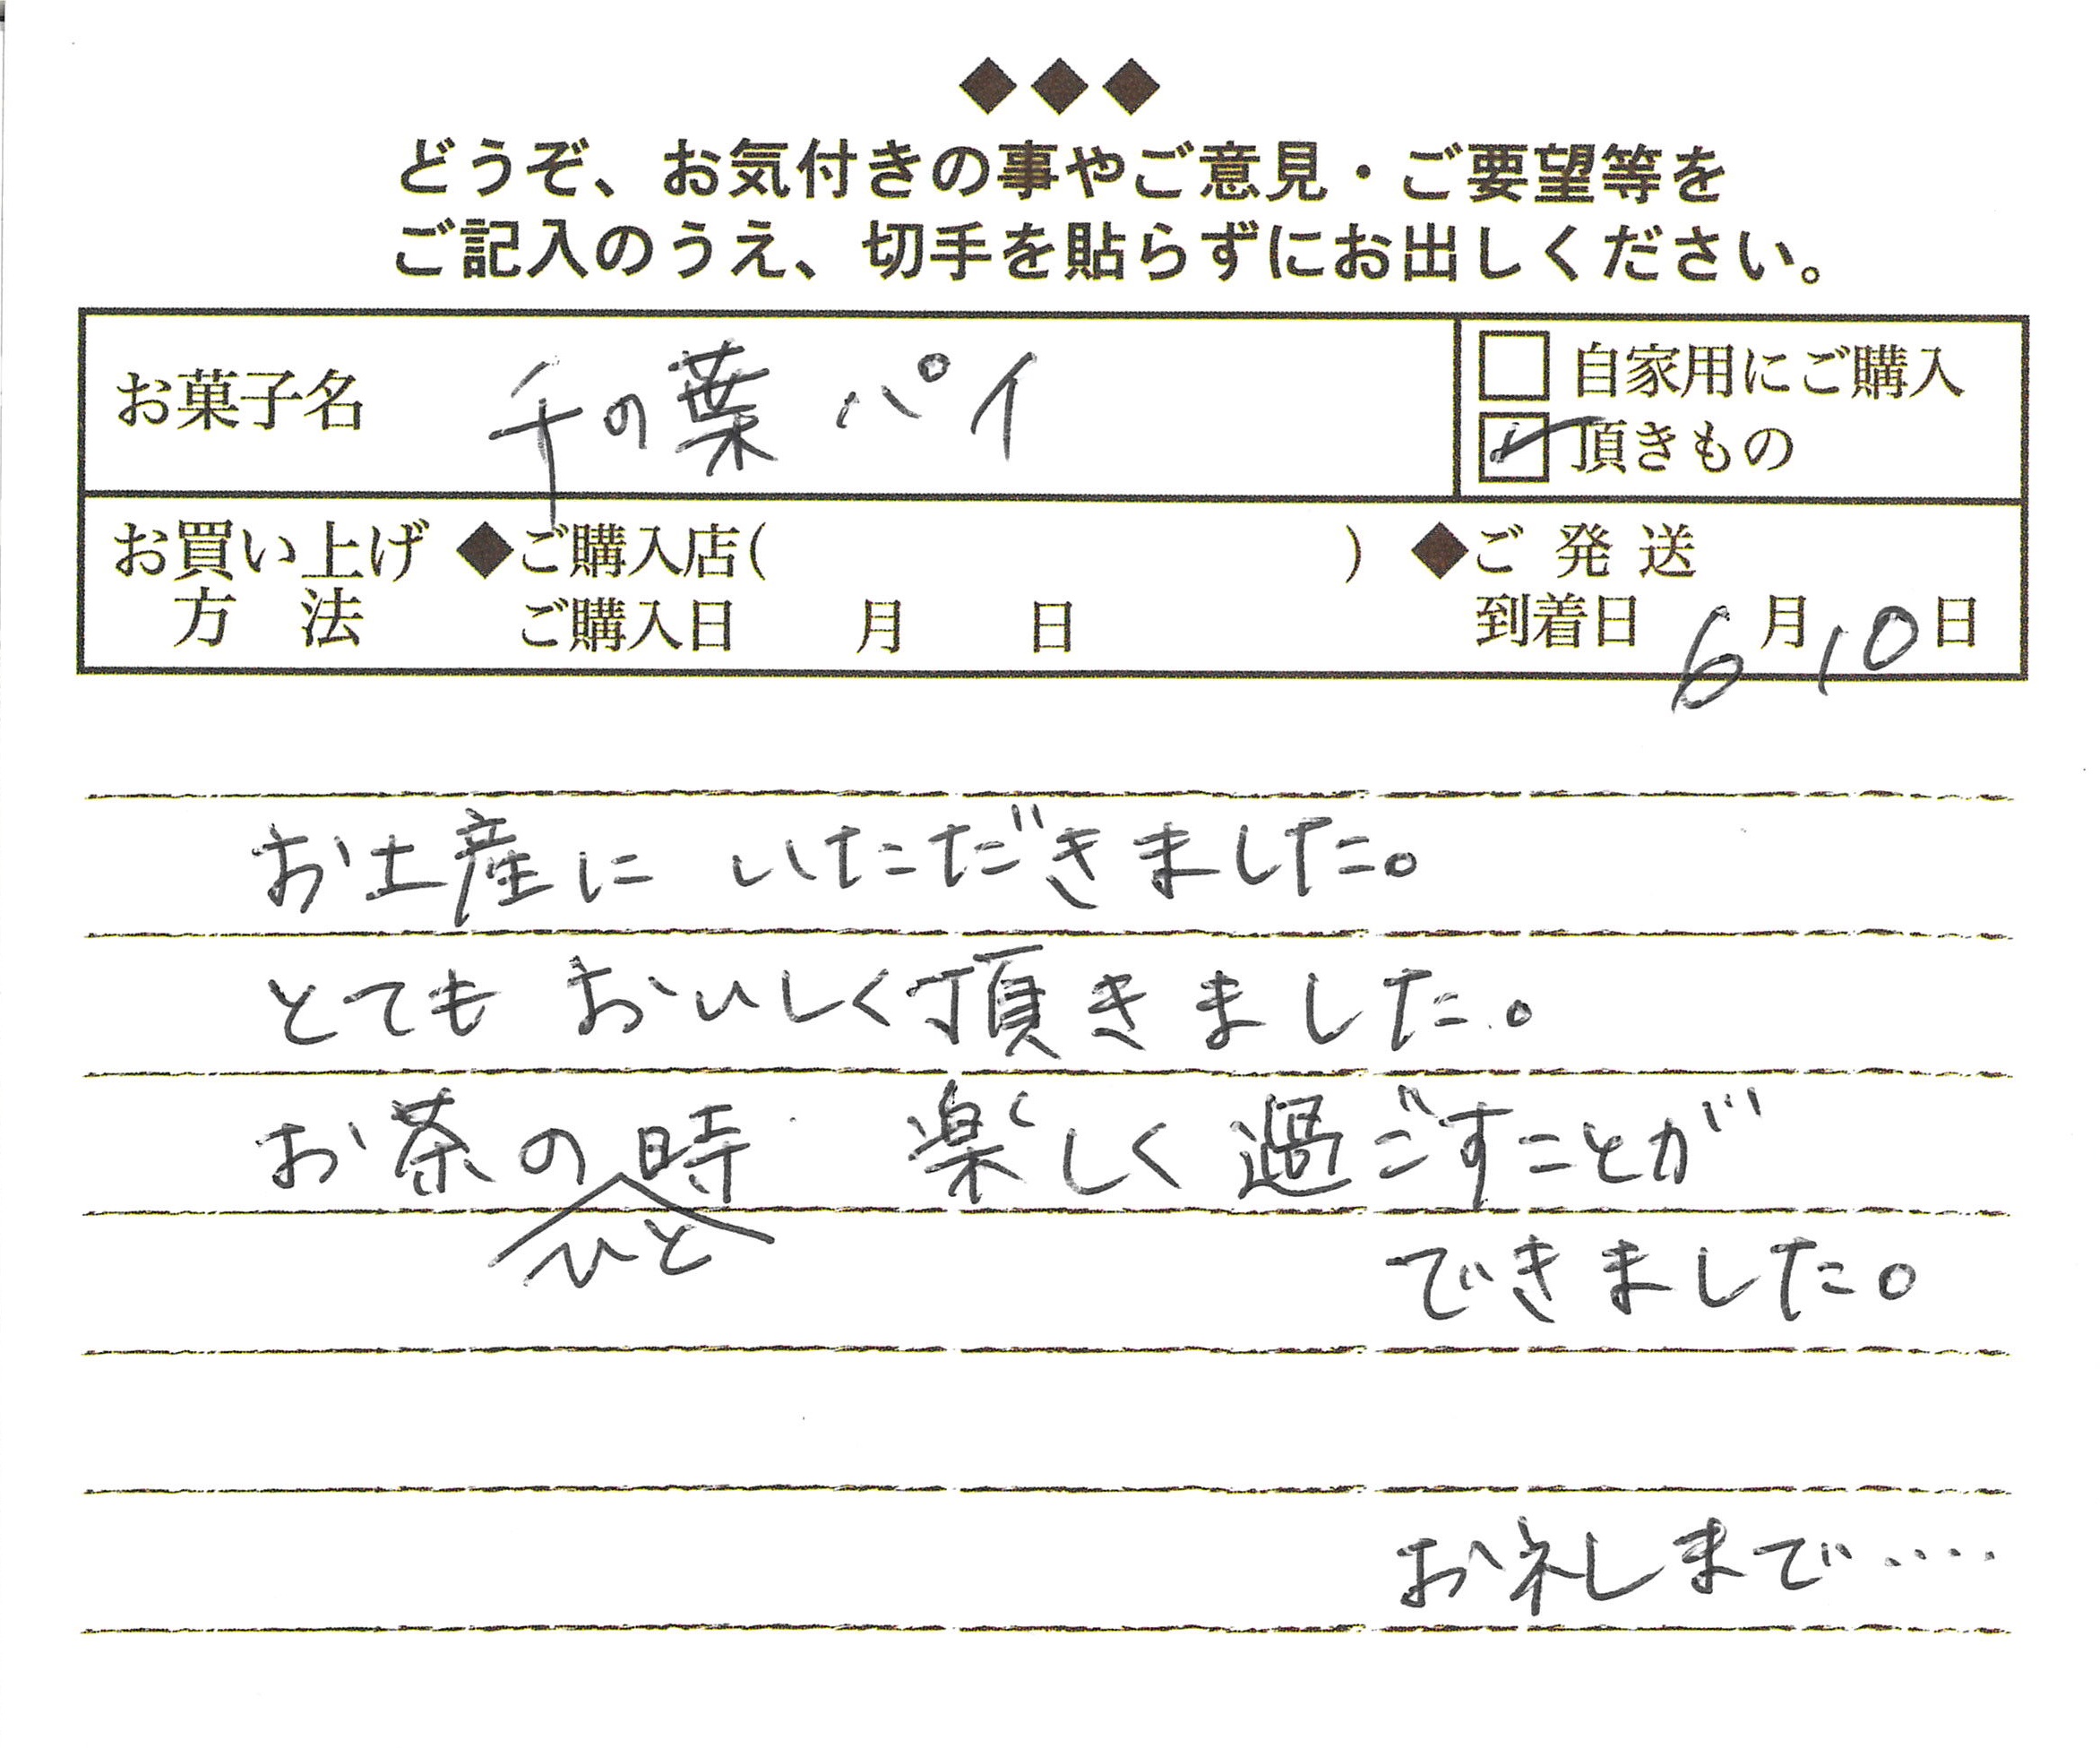 ◆◆◆
どうぞ、お気付きの事やご意見・ご要望等を
ご記入のうえ、切手を貼らずにお出しください。
お菓子名 千の葉パイ
□ 自家用にご購入
☑ 頂きもの
お買い上げ方法
◆ご購入店( )
ご購入日 月 日
◆ご発送
到着日 6月10日
お土産に いただきました。
とても おいしく頂きました。
お茶のひと時 楽しく過ごすことが
できました。
お礼まで‥‥